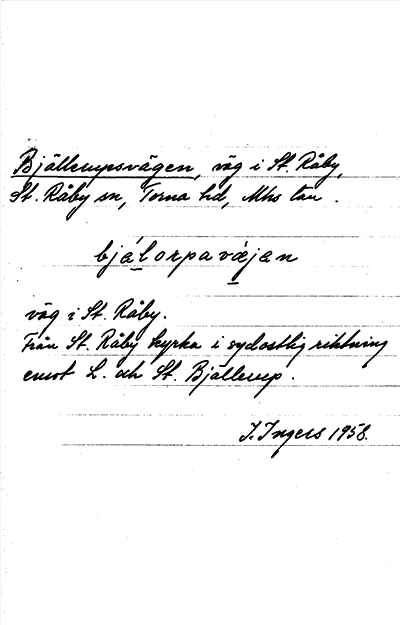 Bjällerupsvägen, väg i St. Råby,
St. Råby sn, Torna hd, Mhs län.
bjálorpavæjan
väg i St. Råby.
Från St. Råby kyrka i sydostlig riktning
emot L. och St. Bjällerup.
I. Ingers 1958.